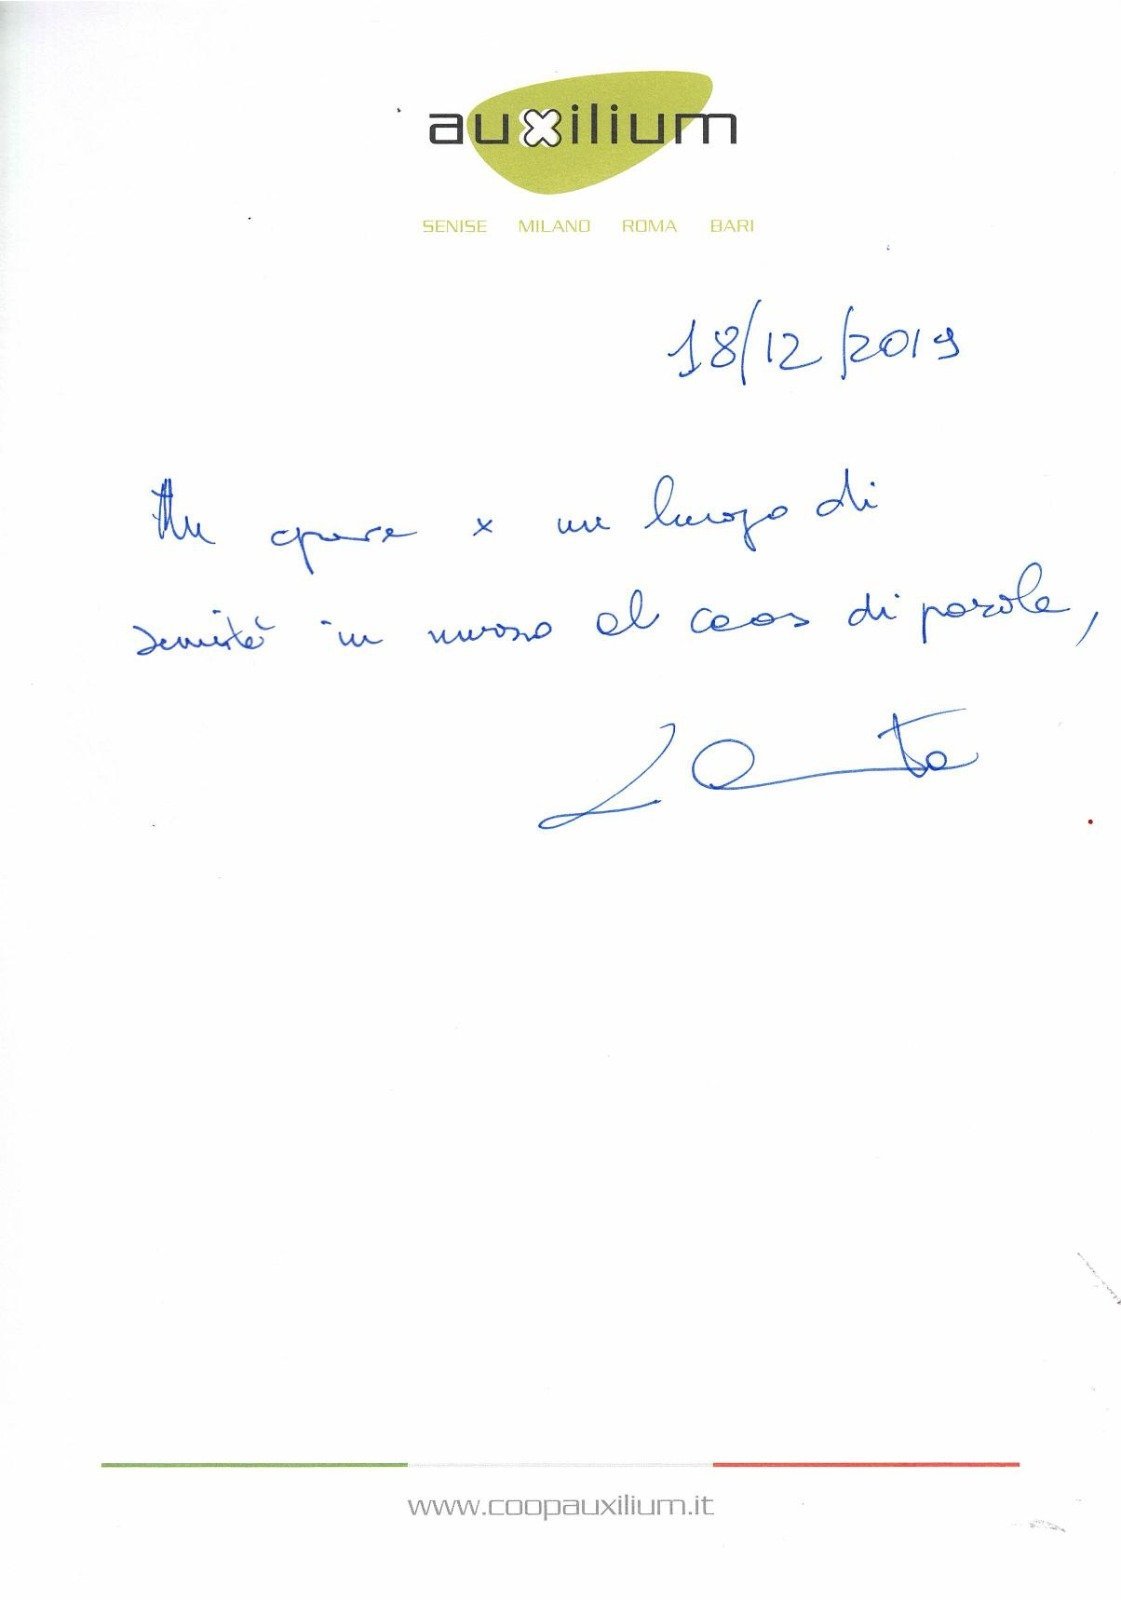 auxilium
SENISE MILANO ROMA BARI
18/12/2019
x un luogo di
in mezzo al caos di parole,
www.coopauxilium.it